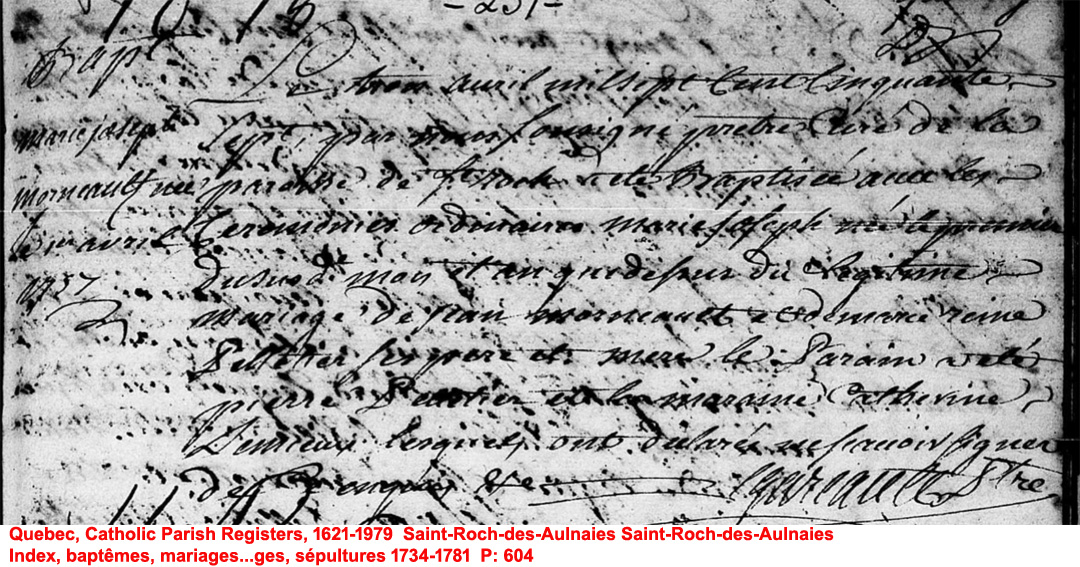 - 251 -
Bapt
marie joseph
morneault née
le 1er avril
1757
Le trois avril mil sept Cent Cinquante
Sept, par nous soussigné prêtre Curé de la
paroisse de St Roch a été Baptisée avec les
Ceremonies ordinaires marie joseph née le premier
du susdt mois et an que dessus du Legitime
mariage de jean morneault et de marie reine
Pelletier ses pere et mere le Parain a été
pierre et la maraine Catherine
Lemieux lesquels ont déclarés ne savoir signer
de ce enquis &c ptre
Quebec, Catholic Parish Registers, 1621-1979 Saint-Roch-des-Aulnaies Saint-Roch-des-Aulnaies
Index, baptêmes, mariages...ges, sépultures 1734-1781 P: 604